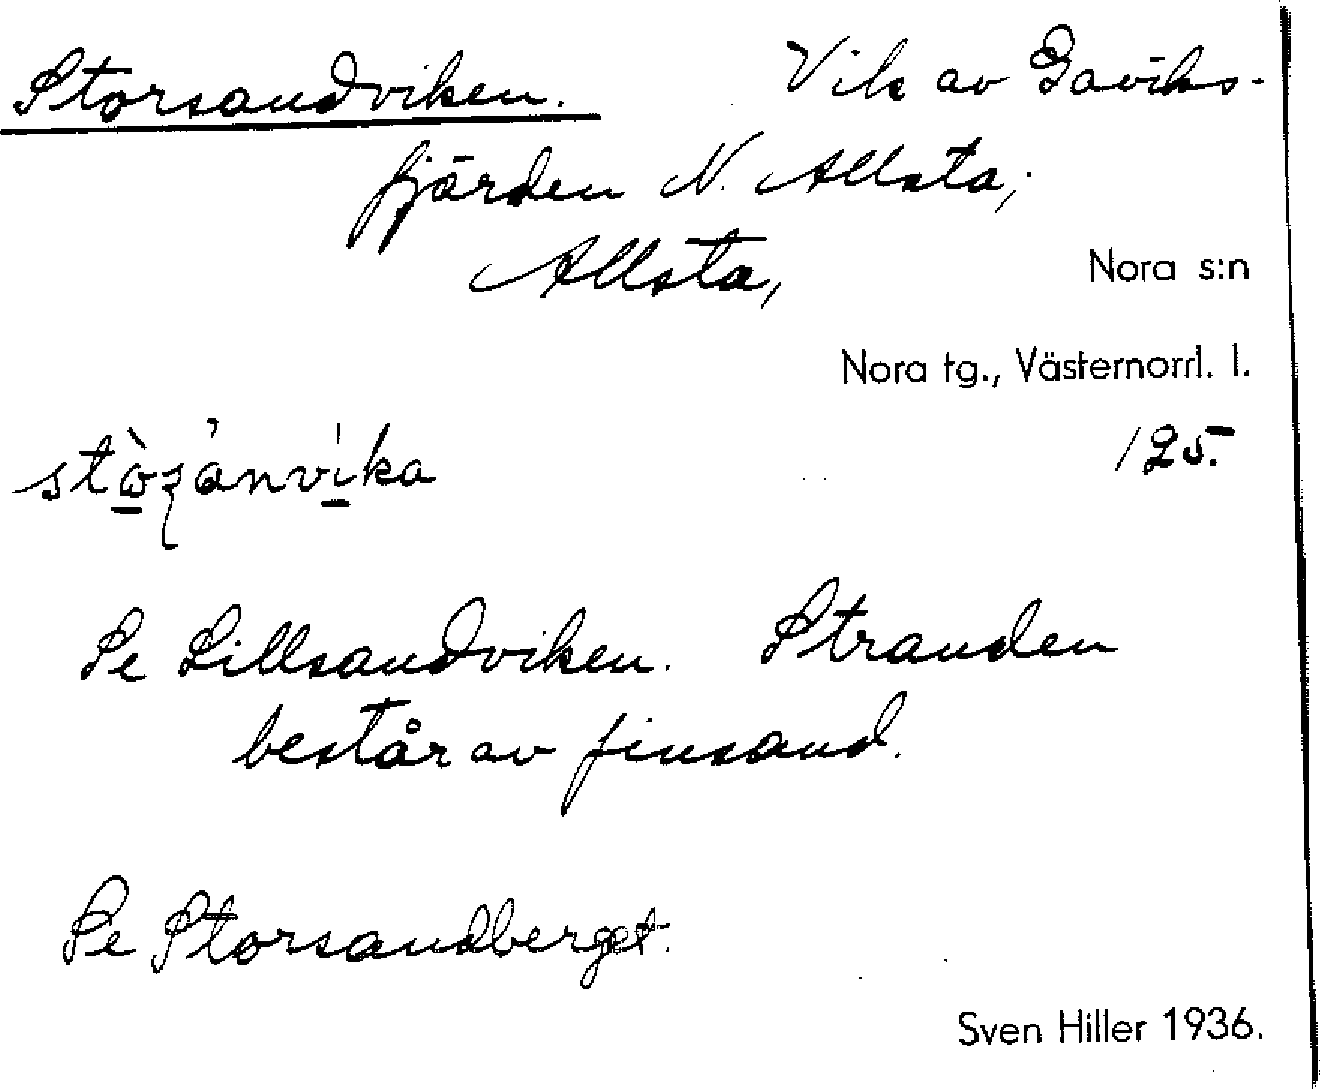 Storsandviken. Vik av Gaviks-
fjärden N. Allsta,
Allsta,
Nora s:n
Nora tg., Västernorrl. l.
125.
Se Lillsandviken. Stranden
består av finsand.
Se Storsandberget.
Sven Hiller 1936.